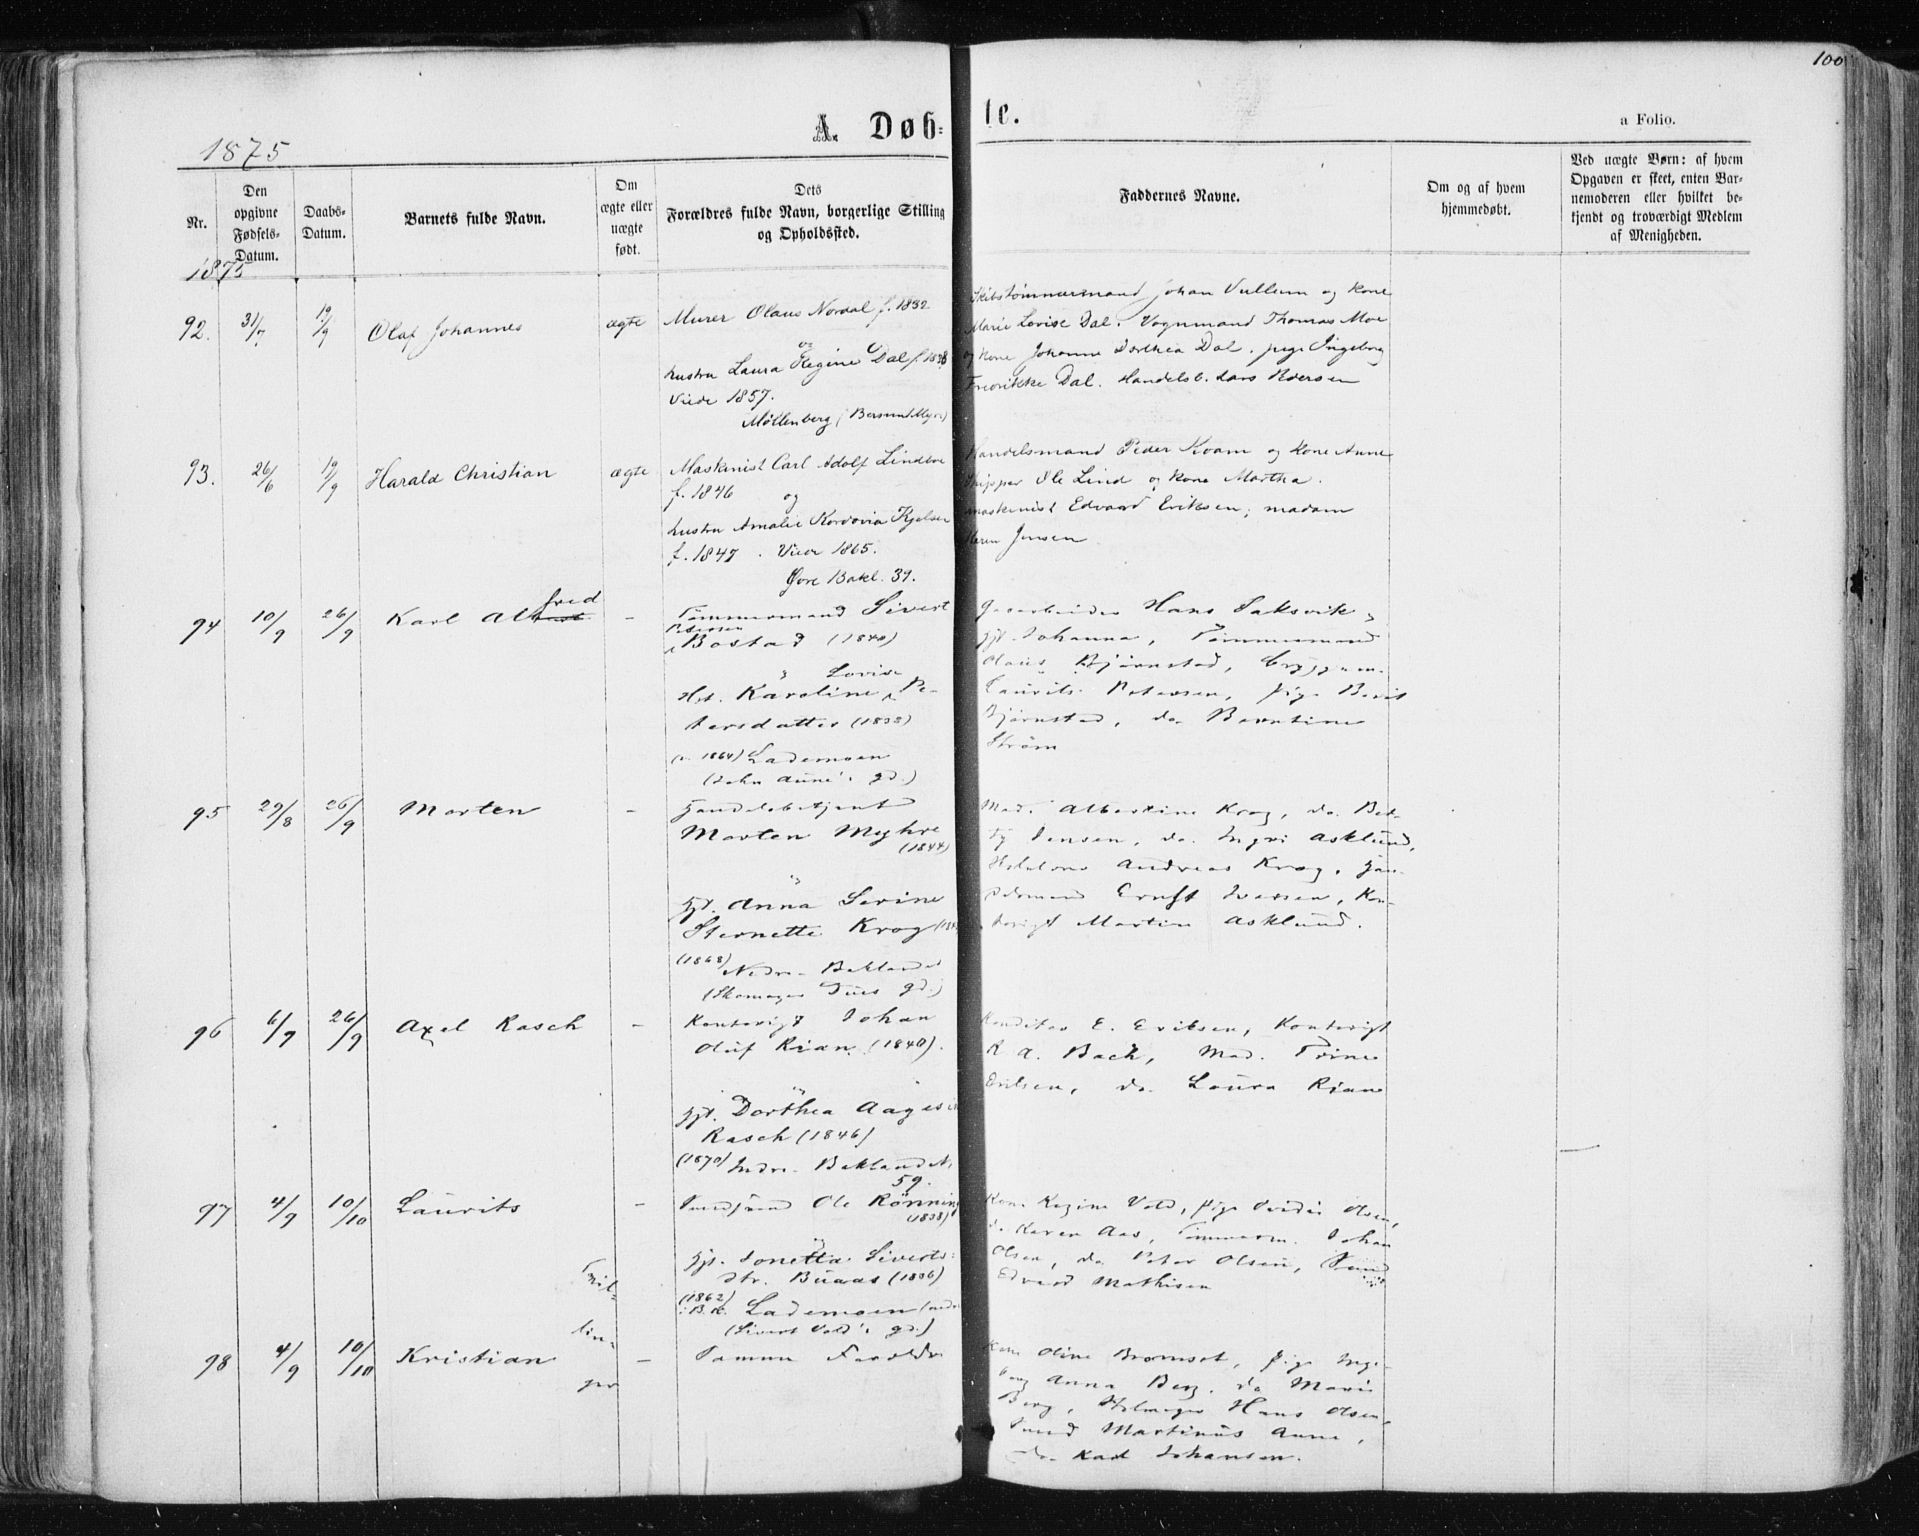 100
A. Døb-
te.
a Folio.
1875
Nr.
Den opgivne Fødsels-Datum.
Daabs-Datum.
Barnets fulde Navn.
Om ægte eller uægte født.
Dets Forældres fulde Navn, borgerlige Stilling og Opholdssted.
Faddernes Navne.
Om og af hvem hjemmedøbt.
Ved uægte Børn: af hvem Opgaven er skeet, enten Barnemoderen eller hvilket bekjendt og troværdigt Medlem af Menigheden.
1875
92. 31/7 19/9 Olaf Johannes ægte
Murer Olaus Nordal f. 1832
og
hustru Laura Regine Dal f. 1838
Viede 1857.
Møllenberg (Bersund Myr)
Skibstømmermand Johan Vullum og Kone
Marie Lovise Dal. Vognmand Thomas Moe
og Kone Johanne Dorthea Dal. pige Ingeborg
Fredrikke Dal. Handelsb. Lars Iversen
93. 26/6 19/9 Harald Christian ægte
Maskinist Carl Adolf Lindboe
f. 1846 og
hustru Amalie Kordovia Kjelsen
f. 1847. Viede 1865.
Øvre Bakl. 39.
Handelsmand Peder Kvam og Kone Anne
Skipper Ole Lind og Kone Martha.
maskinist Edvard Eriksen, madam
Karen Jensen
94 10/9 26/9 Karl Alfred -
Tømmermand Sivert
Petersen
Bostad (1840)
Lovise
Hst. Karoline Pe-
tersdatter (1838)
(v. 1864) Lademoen
(John Aune's gd.)
Gasarbeider Hans Saksvik,
Hst. Johanna, Tømmermand
Olaus Bjørnstad, Bryggem.
Laurits Petersen, pige Berit
Bjørnstad, do Berntine
Strøm
95 29/8 26/9 Morten -
Handelsbetjent
Morten Meyhre
(1844)
Hst. Anna Serine
Sternette Krog
(1868) Nedre Baklandet
(Skomager Tües gd.)
Mad. Albertine Krog, do Bet-
ty Jensen, do Ingri Asklund,
Andreas Krog, Han-
delsmand Ernst Iversen, Kon-
torist Martin Asklund.
96 6/9 26/9 Axel Rasch -
Kontorist Johan
Oluf Rian (1840).
Hst. Dorthea Aagesin
Rasch (1846)
(1870) Indre Bakland N.
59.
Konditor E. Eriksen, Kontorist
R A. Bach, Mad. Trine
Eriksen, do Laura Rian
97 4/9 10/10 Laurits -
Tvil-
lin-
ger
Ole Rønning
(1838)
Hst. Jonetta Siverts-
dtr. Buaas (1836)
(1862)
i B.K. Lademoen
(Sivert Vold's gd.)
Kone Regine Vold, pige Olsen,
do Karen Aas, Tømmerm. Johan
Olsen, do Peter Olsen, Smed
Edvard Mathisen
98 4/9 10/10 Kristian -
Samme Forældre
Kone Oline Bromset, pige Inge-
borg Anna Berg, do Marie
Berg, Hans Olsen,
Smed Martinus Aune,
do Karl Johansen.